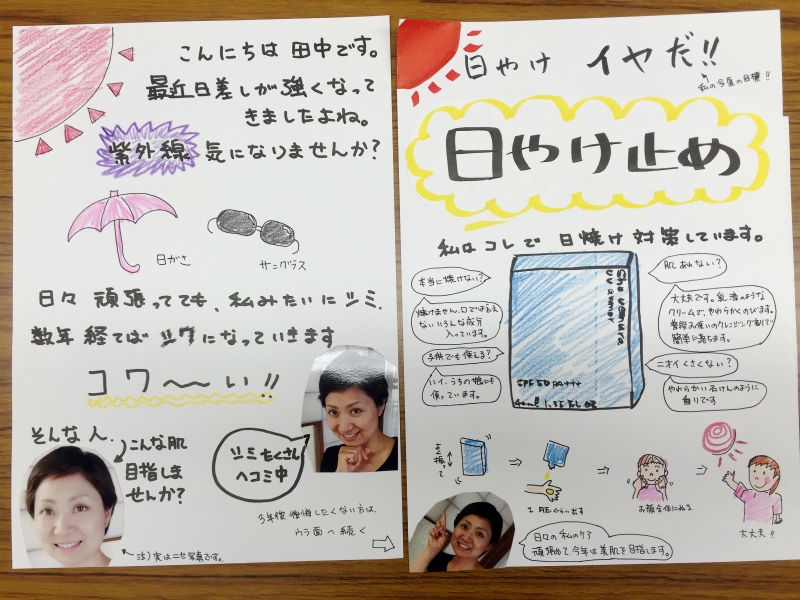 こんにちは 田中です。
最近日差しが強くなって
きましたよね。
紫外線 気になりませんか?
日がさ
サングラス
日々 頑張ってても、私みたいにシミ、
数年 経てば シワになっていきます
コワ〜〜い!!
シミたくさん
ヘコミ中
そんな人、
こんな肌
目指しま
せんか?
注)実はニセ写真です。
3年後後悔したくない方は、
ウラ面へ続く
日やけ イヤだ!!
私の今夏の目標!!
日やけ止め
私はコレで 日焼け 対策しています。
本当に焼けない?
焼けません。口では言え
ないいろんな成分
入っています。
子供でも使える?
ハイ、うちの娘にも
使っています。
SPF50 PA++++
肌あれない?
大丈夫です。乳液のような
クリームで、やわらかくのびます。
普段お使いのクレンジング剤で
簡単に落ちます。
ニオイくさくない?
やわらかい石けんのように
香りです
よく振って
1円ぐらい出す
お顔全体にぬる
大丈夫!!
日々の私のケア
頑張って、今年は美肌を目指します。